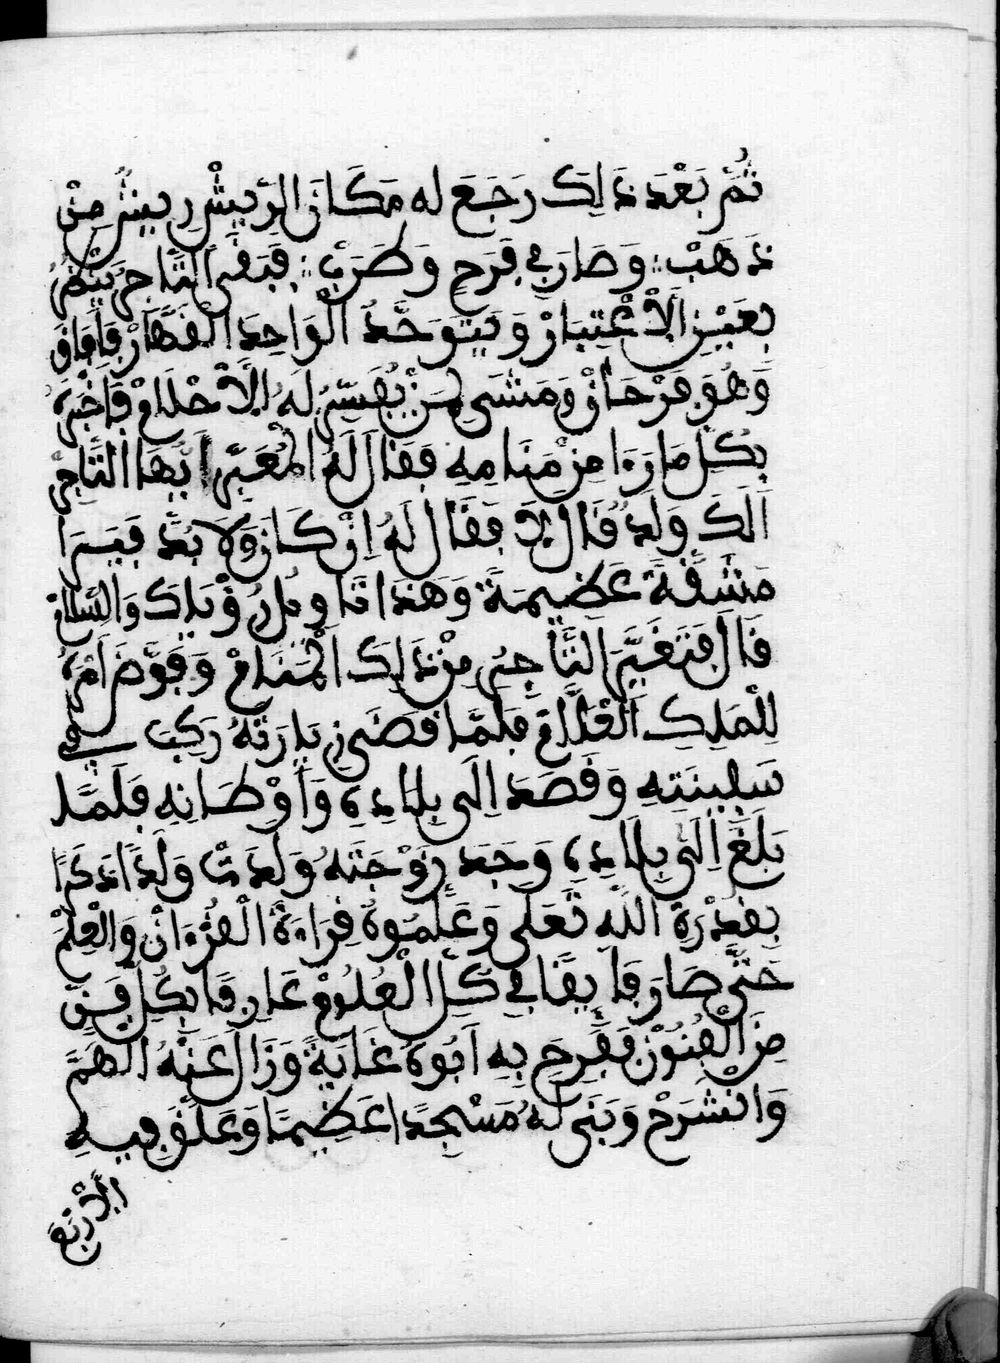 ثُمَّ بَعْدَ ذَلِكَ رَجَعَ له مَكَانَ الرِّيشْ رِيشٌ مِنْ
ذَهَبْ وَصَارَ فِي فَرَحٍ وَطَرَبْ فَبَقَى التَّاجِرُ يَنْظُرُ
بِعَيْنِ الْاِعْتِبَارْ وَيَتَوَحَّدُ الْوَاحِدَ الْقَهَّارْ فَأَفَاقَ
وَهُوَ فَرْحَانْ وَمَشَى لِمَنْ يُفَسِّرُ لَهُ الْأَحْلَامْ فَأَخْبَرَهُ
بِكُلِّ مَا رَءَا مِنْ مَنَامِهِ فَقَالَ لَهُ الْمُعَبِّرُ أَيُّهَا التَّاجِرُ
اَلَكَ وَلَدٌ قَالَ لَا فَقَالَ لَهُ اِنْ كَانَ وَلَا بُدَّ فَيَرَا
مَشَقَّةً عَظِيمَةً وَهَذَا تَاوِيلُ رُؤْيَاكَ وَالسَّلَامْ
قَالَ فَتَغَيَّرَ التَّاجِرُ مِنْ ذَلِكَ الْمَنَامْ وَفَوَّضَ أَمْرَهُ
لِلْمَلِكِ الْعَلَّامْ فَلَمَّا قَضَى زِيَارَتَهُ رَكِبَ فِي
سَفِينَتِهِ وَقَصَدَ اِلَى بِلَادِهِ وَأَوْطَانِهِ فَلَمَّا
بَلَغَ اِلَى بِلَادِهِ وَجَدَ زَوْجَتَهُ وَلَدَتْ وَلَدًا ذَكَرًا
بِقُدْرَةِ اللَّهِ تَعَلَى وَعَلَّمُوهُ قِرَاءَةَ الْقُرْءَانْ وَالْعِلْمْ
حَتَّى صَارَ فَايِقًا فِي كُلِّ الْعُلُومْ عَارِفًا بِكُلِّ فَنٍّ
مِنَ الْفُنُونْ فَفَرِحَ بِهِ اَبُوهُ غَايَةً وَزَالَ عَنْهُ الْهَمَّ
وَانْشَرَحْ وَبَنَى لَهُ مَسْجِدًا عَظِيمًا وَعَلَّقَ فِيهِ
الْأَرْبَعَ